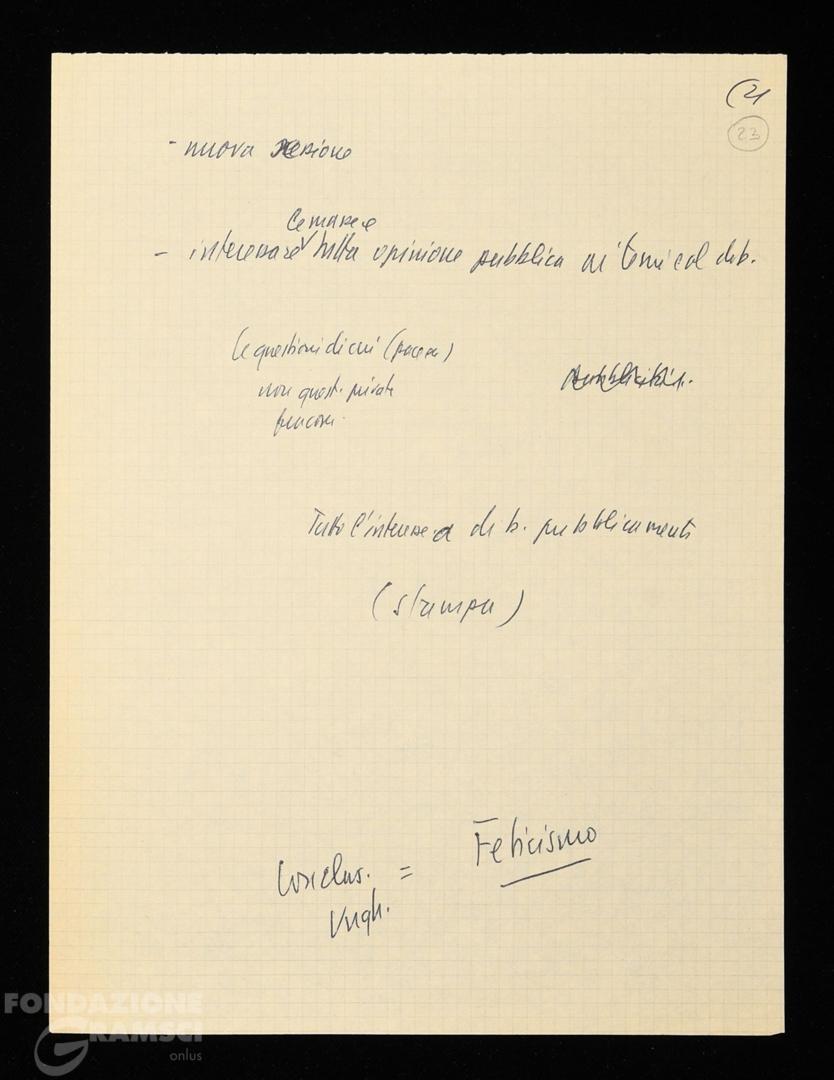 (21
23
- nuova sezione
- interessare tutta opinione pubblica ai temi col dib.
le questioni di cui
non quest. private
Tutto l'interesse dib. pubblicamente
(stampa)
Conclus. = Feticismo
Ungh.
FONDAZIONE
GRAMSCI
onlus